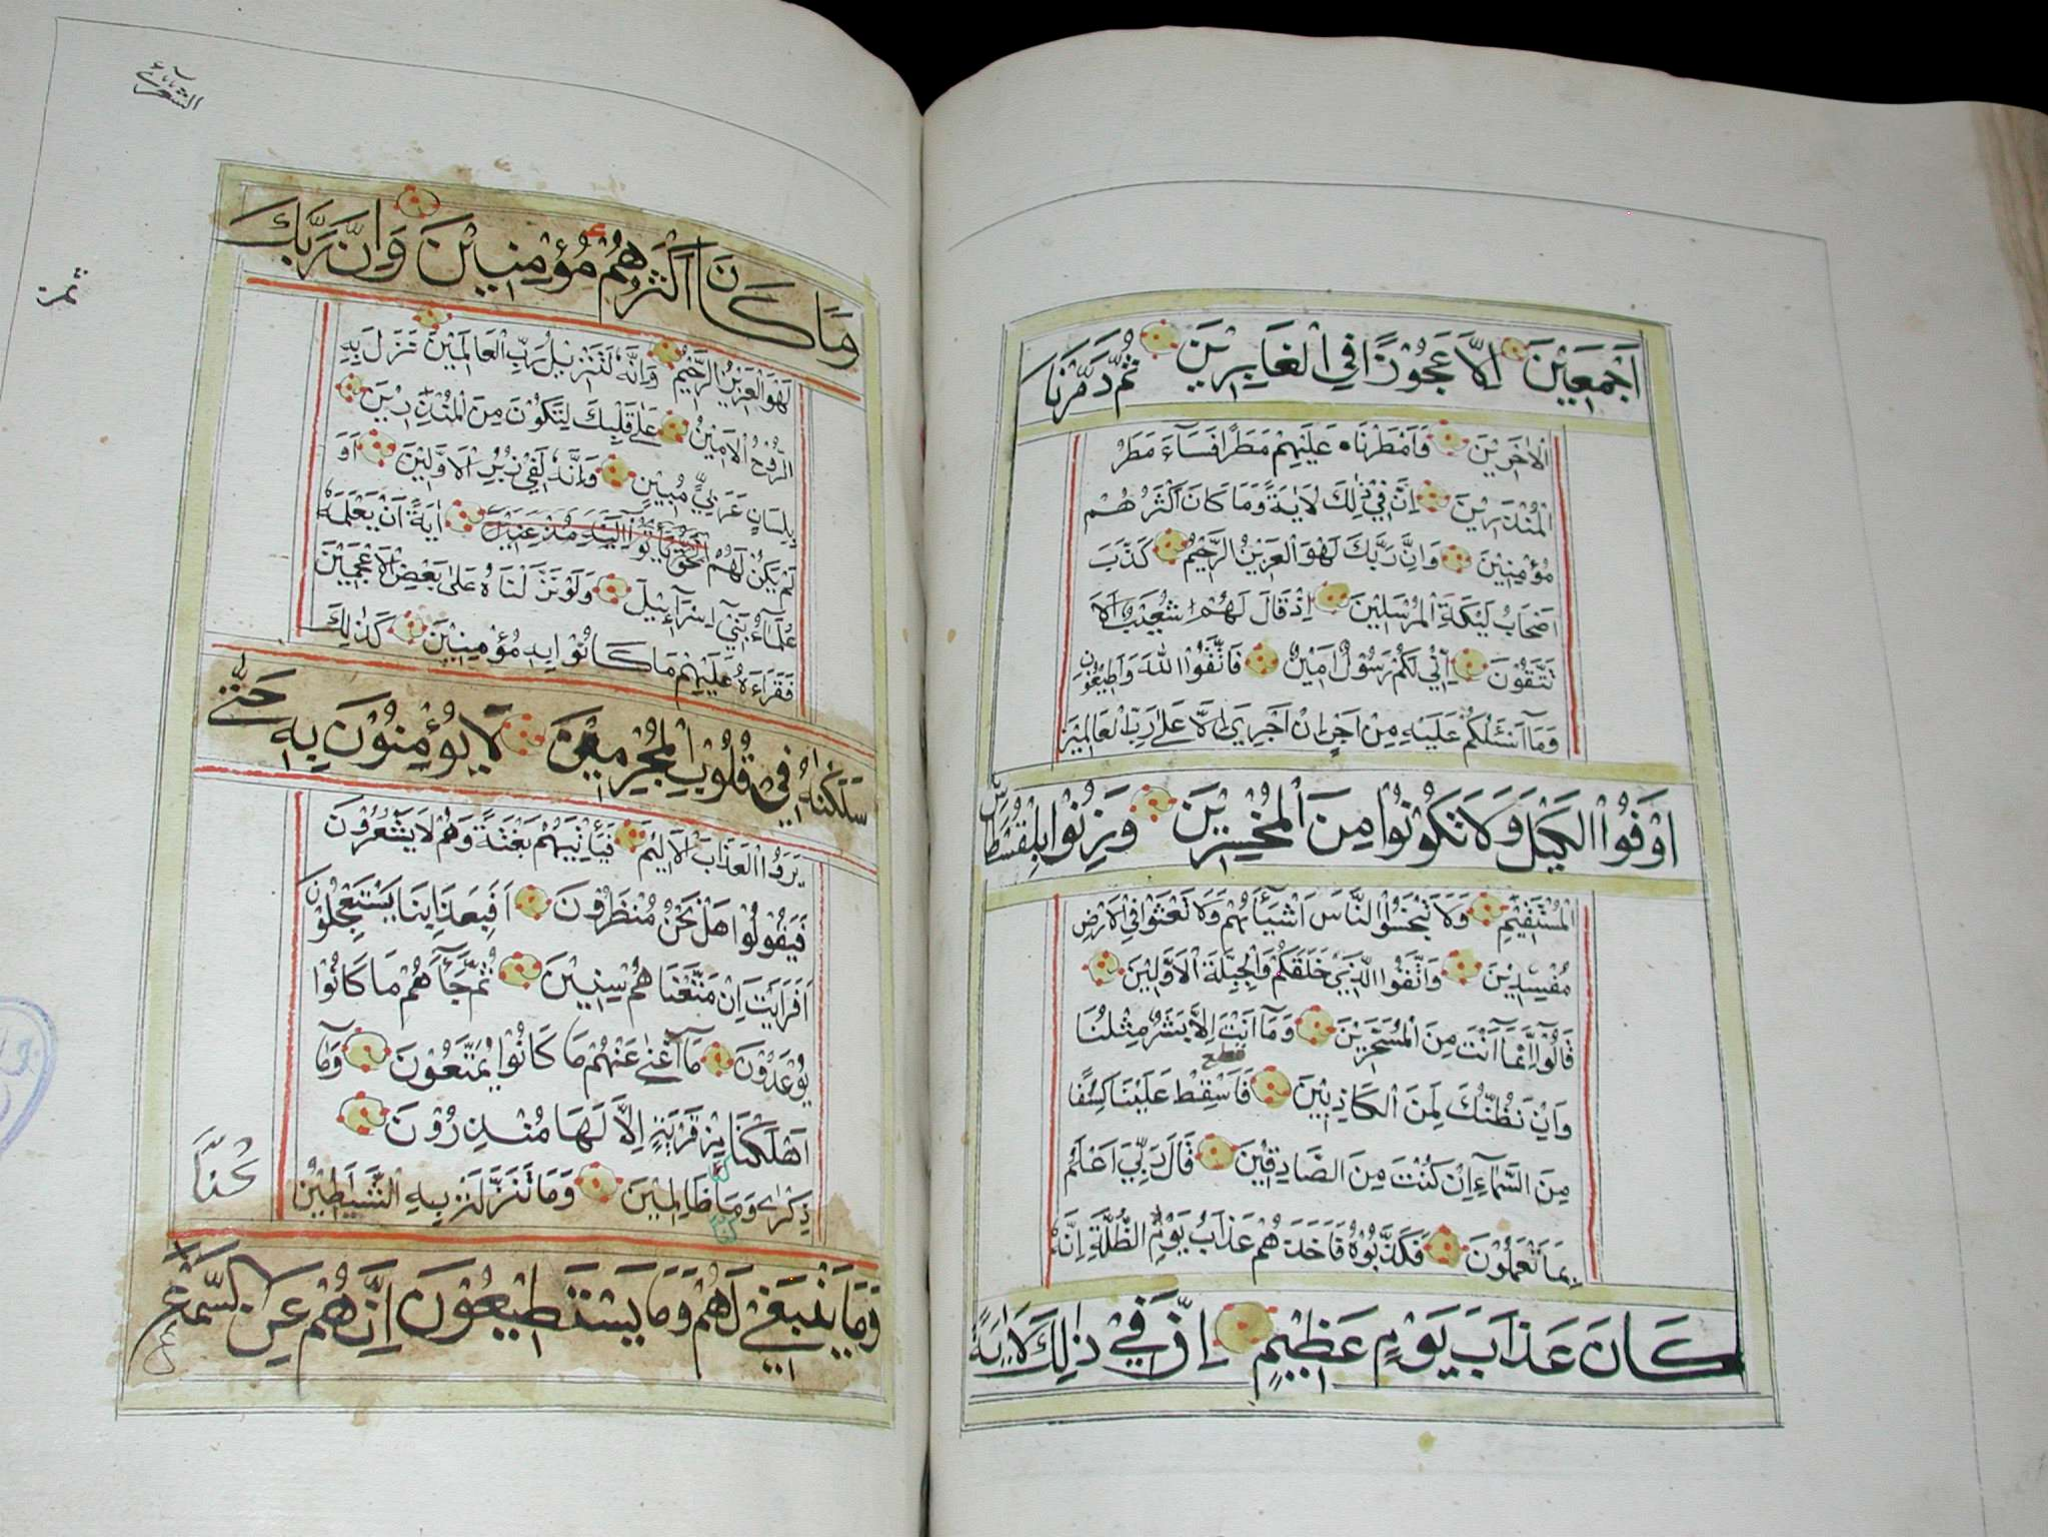 اَجْمَعِيْنَ اِلَّا عَجُوْزًا فِي الْغَابِرِيْنَ ثُمَّ دَمَّرْنَا
الْاٰخَرِيْنَ وَاَمْطَرْنَاه عَلَيْهِمْ مَطَرًا فَسَآءَ مَطَرُ
الْمُنْذَرِيْنَ اِنَّ فِيْ ذٰلِكَ لَاٰيَةً وَمَا كَانَ اَكْثَرُهُمْ
مُؤْمِنِيْنَ وَاِنَّ رَبَّكَ لَهُوَ الْعَزِيْزُ الرَّحِيْمُ كَذَّبَ
اَصْحَابُ لَيْكَةَ الْمُرْسَلِيْنَ اِذْ قَالَ لَهُمْ شُعَيْبٌ اَلَا
تَتَّقُوْنَ اِنِّي لَكُمْ رَسُوْلٌ اَمِيْنٌ فَاتَّقُوْا اللهَ وَاَطِيْعُوْنِ
وَمَآ اَسْئَلُكُمْ عَلَيْهِ مِنْ اَجْرٍ اِنْ اَجْرِيَ اِلَّا عَلٰى رَبِّ الْعَالَمِيْنَ
اَوْفُوْا الْكَيْلَ وَلَا تَكُوْنُوْا مِنَ الْمُخْسِرِيْنَ وَزِنُوْا بِلْقُسْطَاسِ
الْمُسْتَقِيْمِ وَلَا تَبْخَسُوْا النَّاسَ اَشْيَآءَهُمْ وَلَا تَعْثَوْا فِي الْاَرْضِ
مُفْسِدِيْنَ وَاتَّقُوْا الَّذِيْ خَلَقَكُمْ وَالْجِبِلَّةَ الْاَوَّلِيْنَ
قَالُوْا اِنَّمَآ اَنْتَ مِنَ الْمُسَحَّرِيْنَ وَمَآ اَنْتَ اِلَّا بَشَرٌ مِثْلُنَا
وَاِنْ نَظُنُّكَ لَمِنَ الْكَاذِبِيْنَ فَاَسْقِطْ عَلَيْنَا كِسَفًا
مِنَ السَّمَآءِ اِنْ كُنْتَ مِنَ الصَّادِقِيْنَ قَالَ رَبِّيْ اَعْلَمُ
بِمَا تَعْمَلُوْنَ فَكَذَّبُوْهُ فَاَخَذَهُمْ عَذَابُ يَوْمِ الظُّلَّةِ اِنَّهُ
كَانَ عَذَابَ يَوْمٍ عَظِيْمٍ اِنَّ فِيْ ذٰلِكَ لَاٰيَةً
الشعرآء
وَمَا كَانَ اَكْثَرُهُمْ مُؤْمِنِيْنَ وَاِنَّ رَبَّكَ
لَهُوَ الْعَزِيْزُ الرَّحِيْمُ وَاِنَّهُ لَتَنْزِيْلُ رَبِّ الْعَالَمِيْنَ نَزَلَ بِهِ
الرُّوْحُ الْاَمِيْنُ عَلٰى قَلْبِكَ لِتَكُوْنَ مِنَ الْمُنْذِرِيْنَ
بِلِسَانٍ عَرَبِيٍّ مُبِيْنٍ وَاِنَّهُ لَفِيْ زُبُرِ الْاَوَّلِيْنَ اَوَ
لَمْ يَكُنْ لَهُمْ اٰيَةً اَنْ يَعْلَمَهُ
عُلَمَآءُ بَنِيْٓ اِسْرَآءِيْلَ وَلَوْ نَزَّلْنَاهُ عَلٰى بَعْضِ الْاَعْجَمِيْنَ
فَقَرَاَهُ عَلَيْهِمْ مَا كَانُوْا بِهِ مُؤْمِنِيْنَ كَذٰلِكَ
سَلَكْنَاهُ فِيْ قُلُوْبِ الْمُجْرِمِيْنَ لَا يُؤْمِنُوْنَ بِهِ حَتّٰى
يَرَوُا الْعَذَابَ الْاَلِيْمَ فَيَأْتِيَهُمْ بَغْتَةً وَهُمْ لَا يَشْعُرُوْنَ
فَيَقُوْلُوْا هَلْ نَحْنُ مُنْظَرُوْنَ اَفَبِعَذَابِنَا يَسْتَعْجِلُوْنَ
اَفَرَاَيْتَ اِنْ مَتَّعْنَاهُمْ سِنِيْنَ ثُمَّ جَآءَهُمْ مَا كَانُوْا
يُوْعَدُوْنَ مَآ اَغْنٰى عَنْهُمْ مَا كَانُوْا يُمَتَّعُوْنَ وَمَآ
اَهْلَكْنَا مِنْ قَرْيَةٍ اِلَّا لَهَا مُنْذِرُوْنَ
ذِكْرٰى وَمَا ظَالِمِيْنَ وَمَا تَنَزَّلَتْ بِهِ الشَّيَاطِيْنُ
كُنَّا
وَمَا يَنْبَغِيْ لَهُمْ وَمَا يَسْتَطِيْعُوْنَ اِنَّهُمْ عَنِ السَّمْعِ